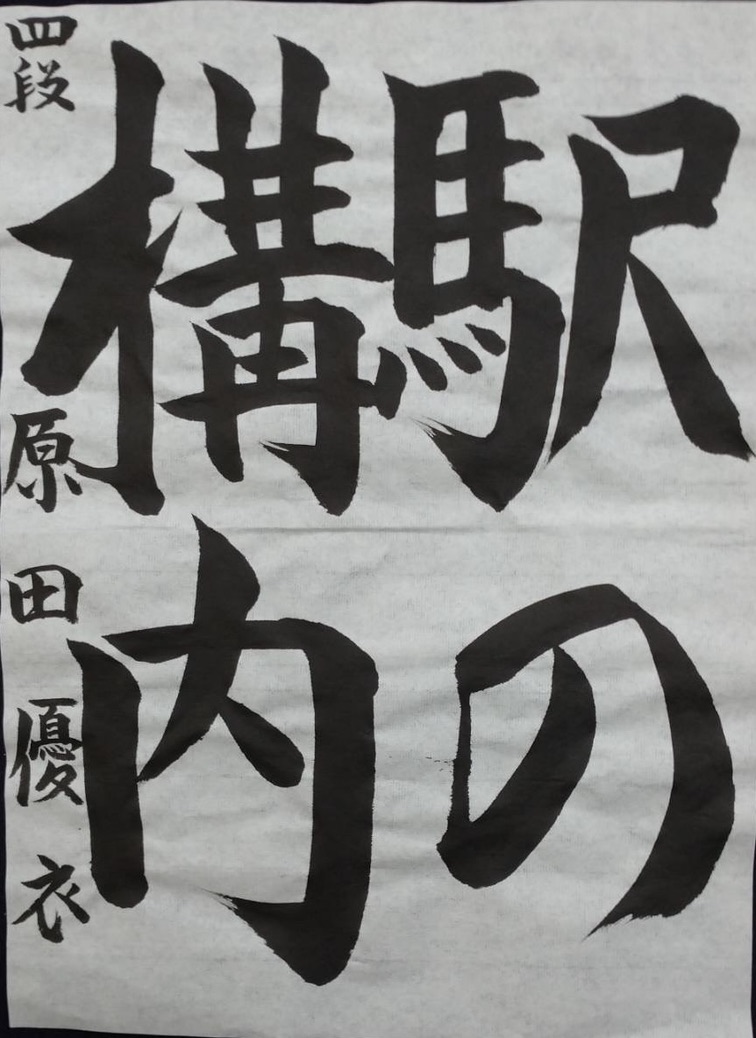 駅の
構内
四段 原田優衣